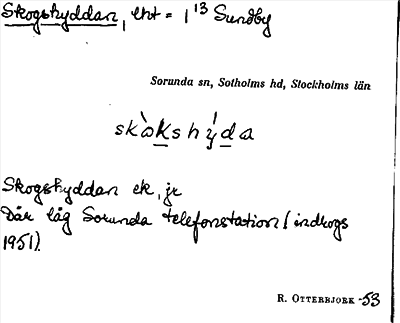 Skogshyddan, lht = 1¹³ Sundby
Sorunda sn, Sotholms hd, Stockholms län
skòkshýda
Skogshyddan ek, jr
Där låg Sorunda telefonstation (indrogs
1951).
R. OTTERBJÖRK -53